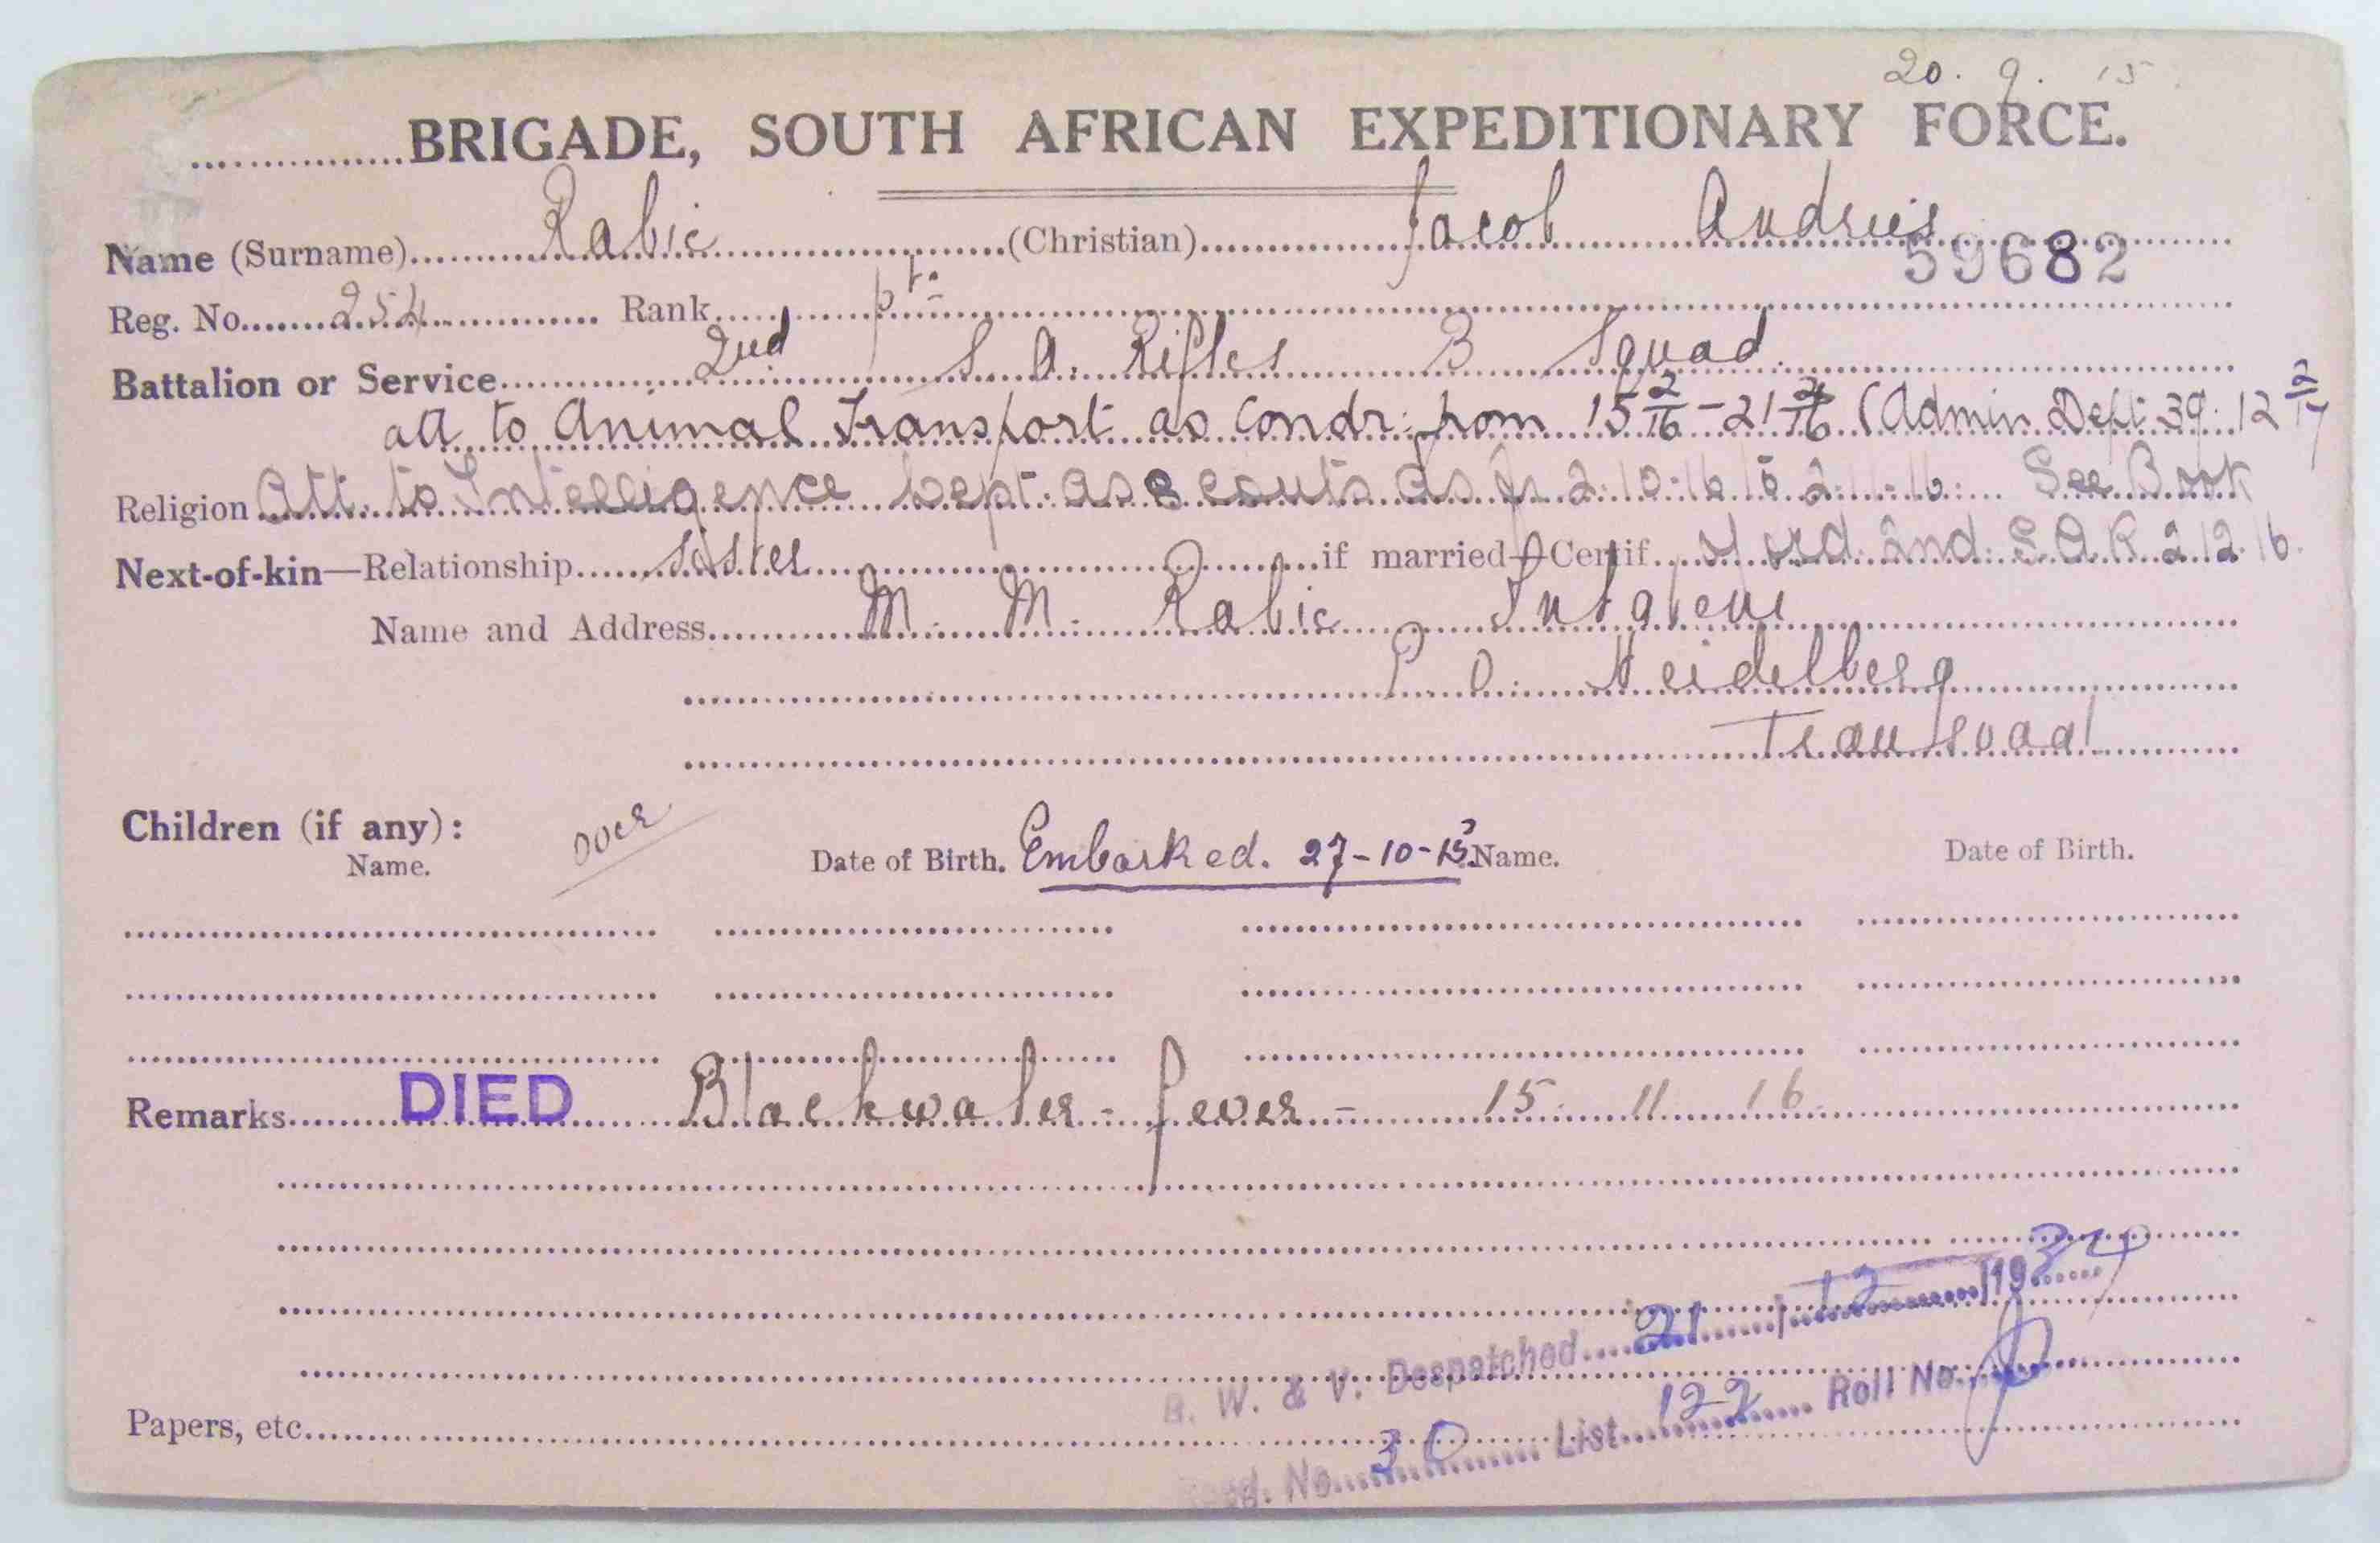 20. 9. 15
...............BRIGADE, SOUTH AFRICAN EXPEDITIONARY FORCE.
Name (Surname) Rabie (Christian) Jacob Andries
59682
Reg. No. 254 Rank pte
Battalion or Service 2nd S. A. Rifles B Squad.
att to Animal Transport as Condr: from 15 2/16 - 21 2/16 (Admin Dept 39: 12 2/17
Religion Att. to Intelligence Dept. as Scouts as fr 2.10.16 to 2.11.16. See Book
Next-of-kin—Relationship sister if married—Certif. Ord. 2nd. S.A.R. 2.12.16.
Name and Address M. M. Rabie
P. O. Heidelberg
Transvaal
Children (if any): over
Name. Date of Birth. Embarked. 27-10-15. Name. Date of Birth.
Remarks DIED Blackwater-fever - 15. 11. 16.
B. W. & V. Despatched 21 / 12 /19
No. 30 List 122 Roll No.
Papers, etc.